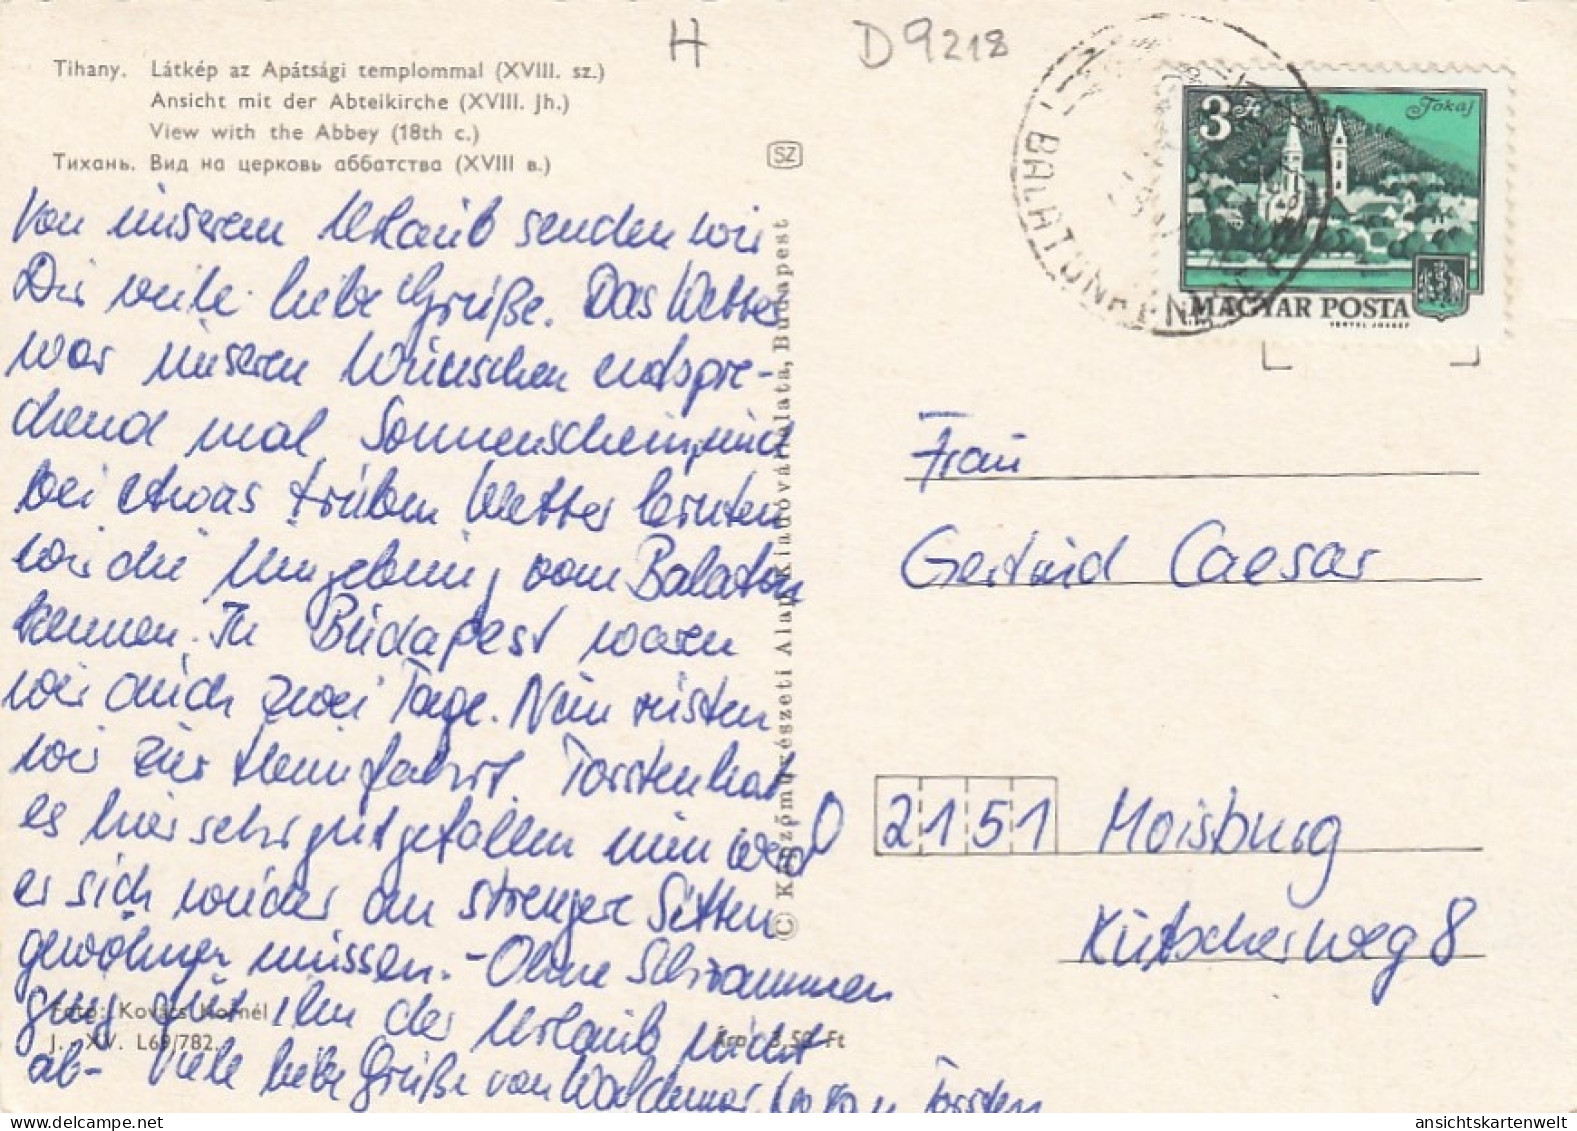 H
D 9218
Tihany. Látkép az Apátsági templommal (XVIII. sz.)
Ansicht mit der Abteikirche (XVIII. Jh.)
View with the Abbey (18th c.)
Тихань. Вид на церковь аббатства (XVIII в.)
SZ
3 Ft
Tokaj
MAGYAR POSTA
VERTEL JÓZSEF
Von unserem Urlaub senden wir
Dir viele liebe Grüße. Das Wetter
war unseren Wünschen entspre-
chend mal Sonnenschein, und
bei etwas trüben Wetter lernten
wir die Umgebung vom Balaton
kennen. In Budapest waren
wir auch zwei Tage. Nun rüsten
wir zur Heimfahrt. Torsten hat
es hier sehr gut gefallen nun wird
er sich wieder an strenge Sitten
gewöhnen müssen. - Ohne Schrammen
ging für ihn der Urlaub nicht
ab - Viele liebe Grüße von Waldemar, u. Torsten
Foto: Kovács Kornél
J. - XV. L69/782.
Ára: 3,50 Ft
© Képzőművészeti Alap Kiadóvállalata, Budapest
Frau
Gertrud Caesar
D 2151 Moisburg
Kutscherweg 8
ansichtskartenwelt